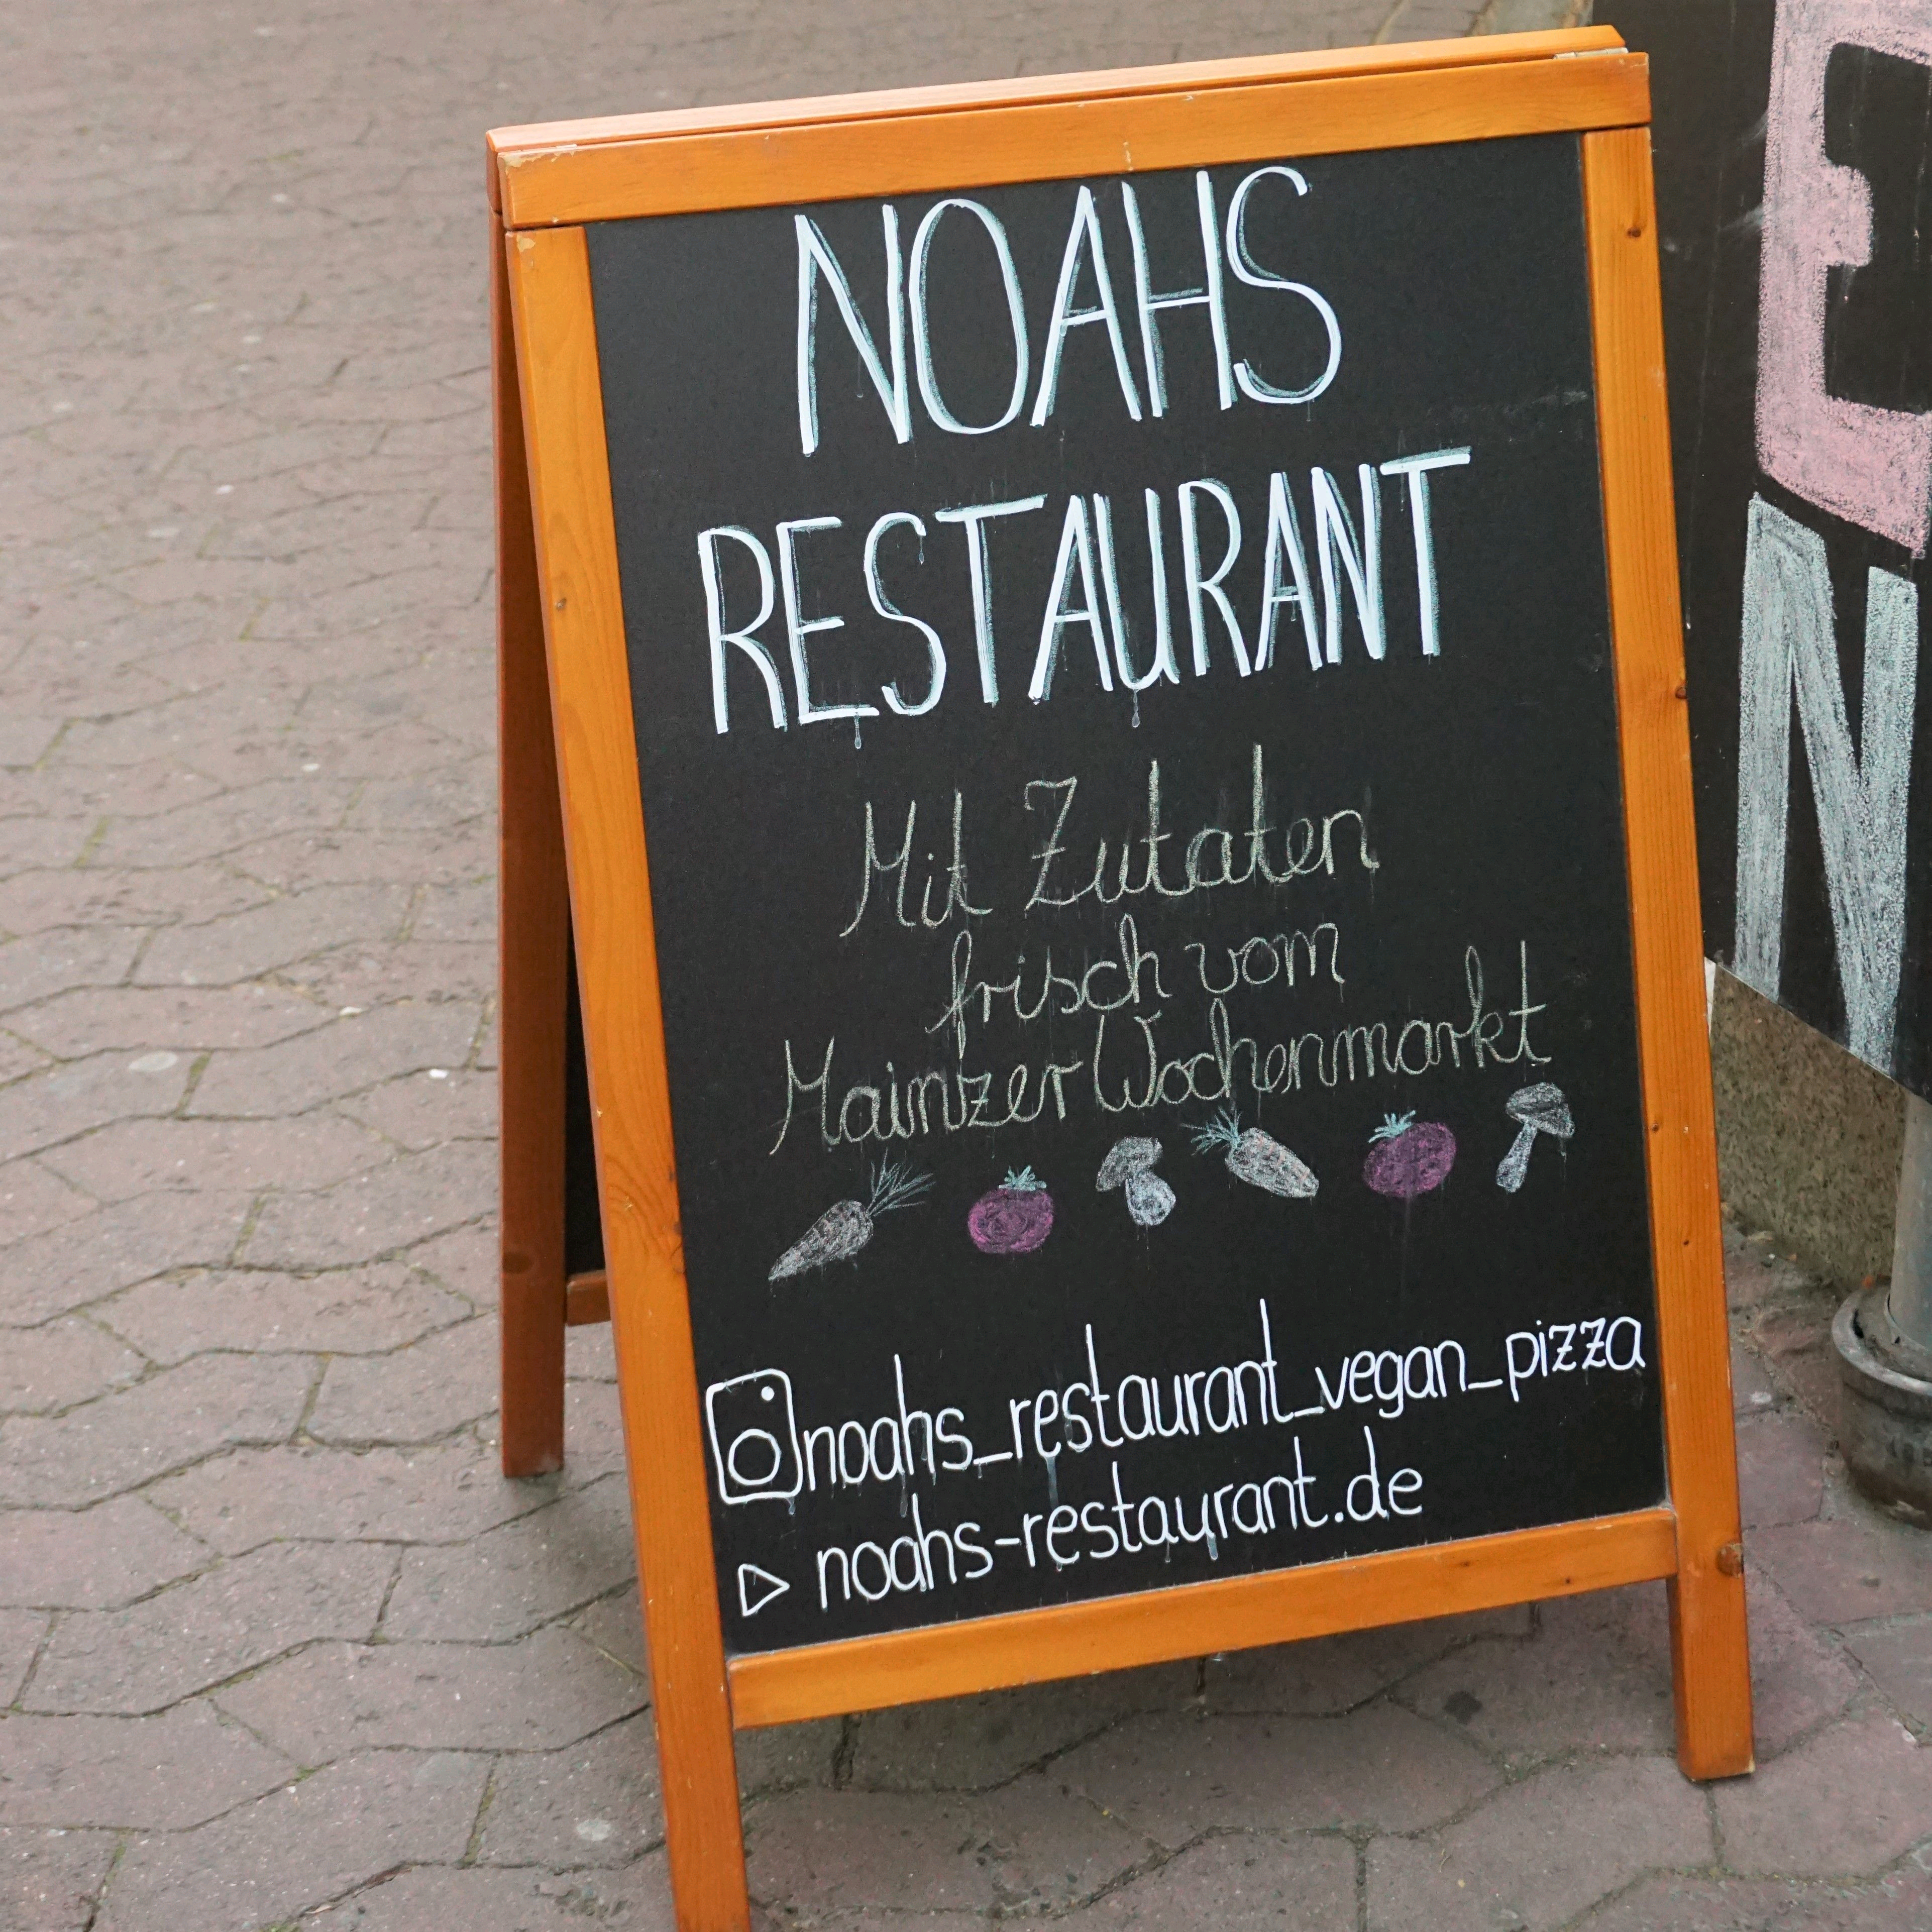 NOAHS
RESTAURANT
Mit Zutaten
frisch vom
Mainzer Wochenmarkt
noahs_restaurant_vegan_pizza
noahs-restaurant.de
E
N